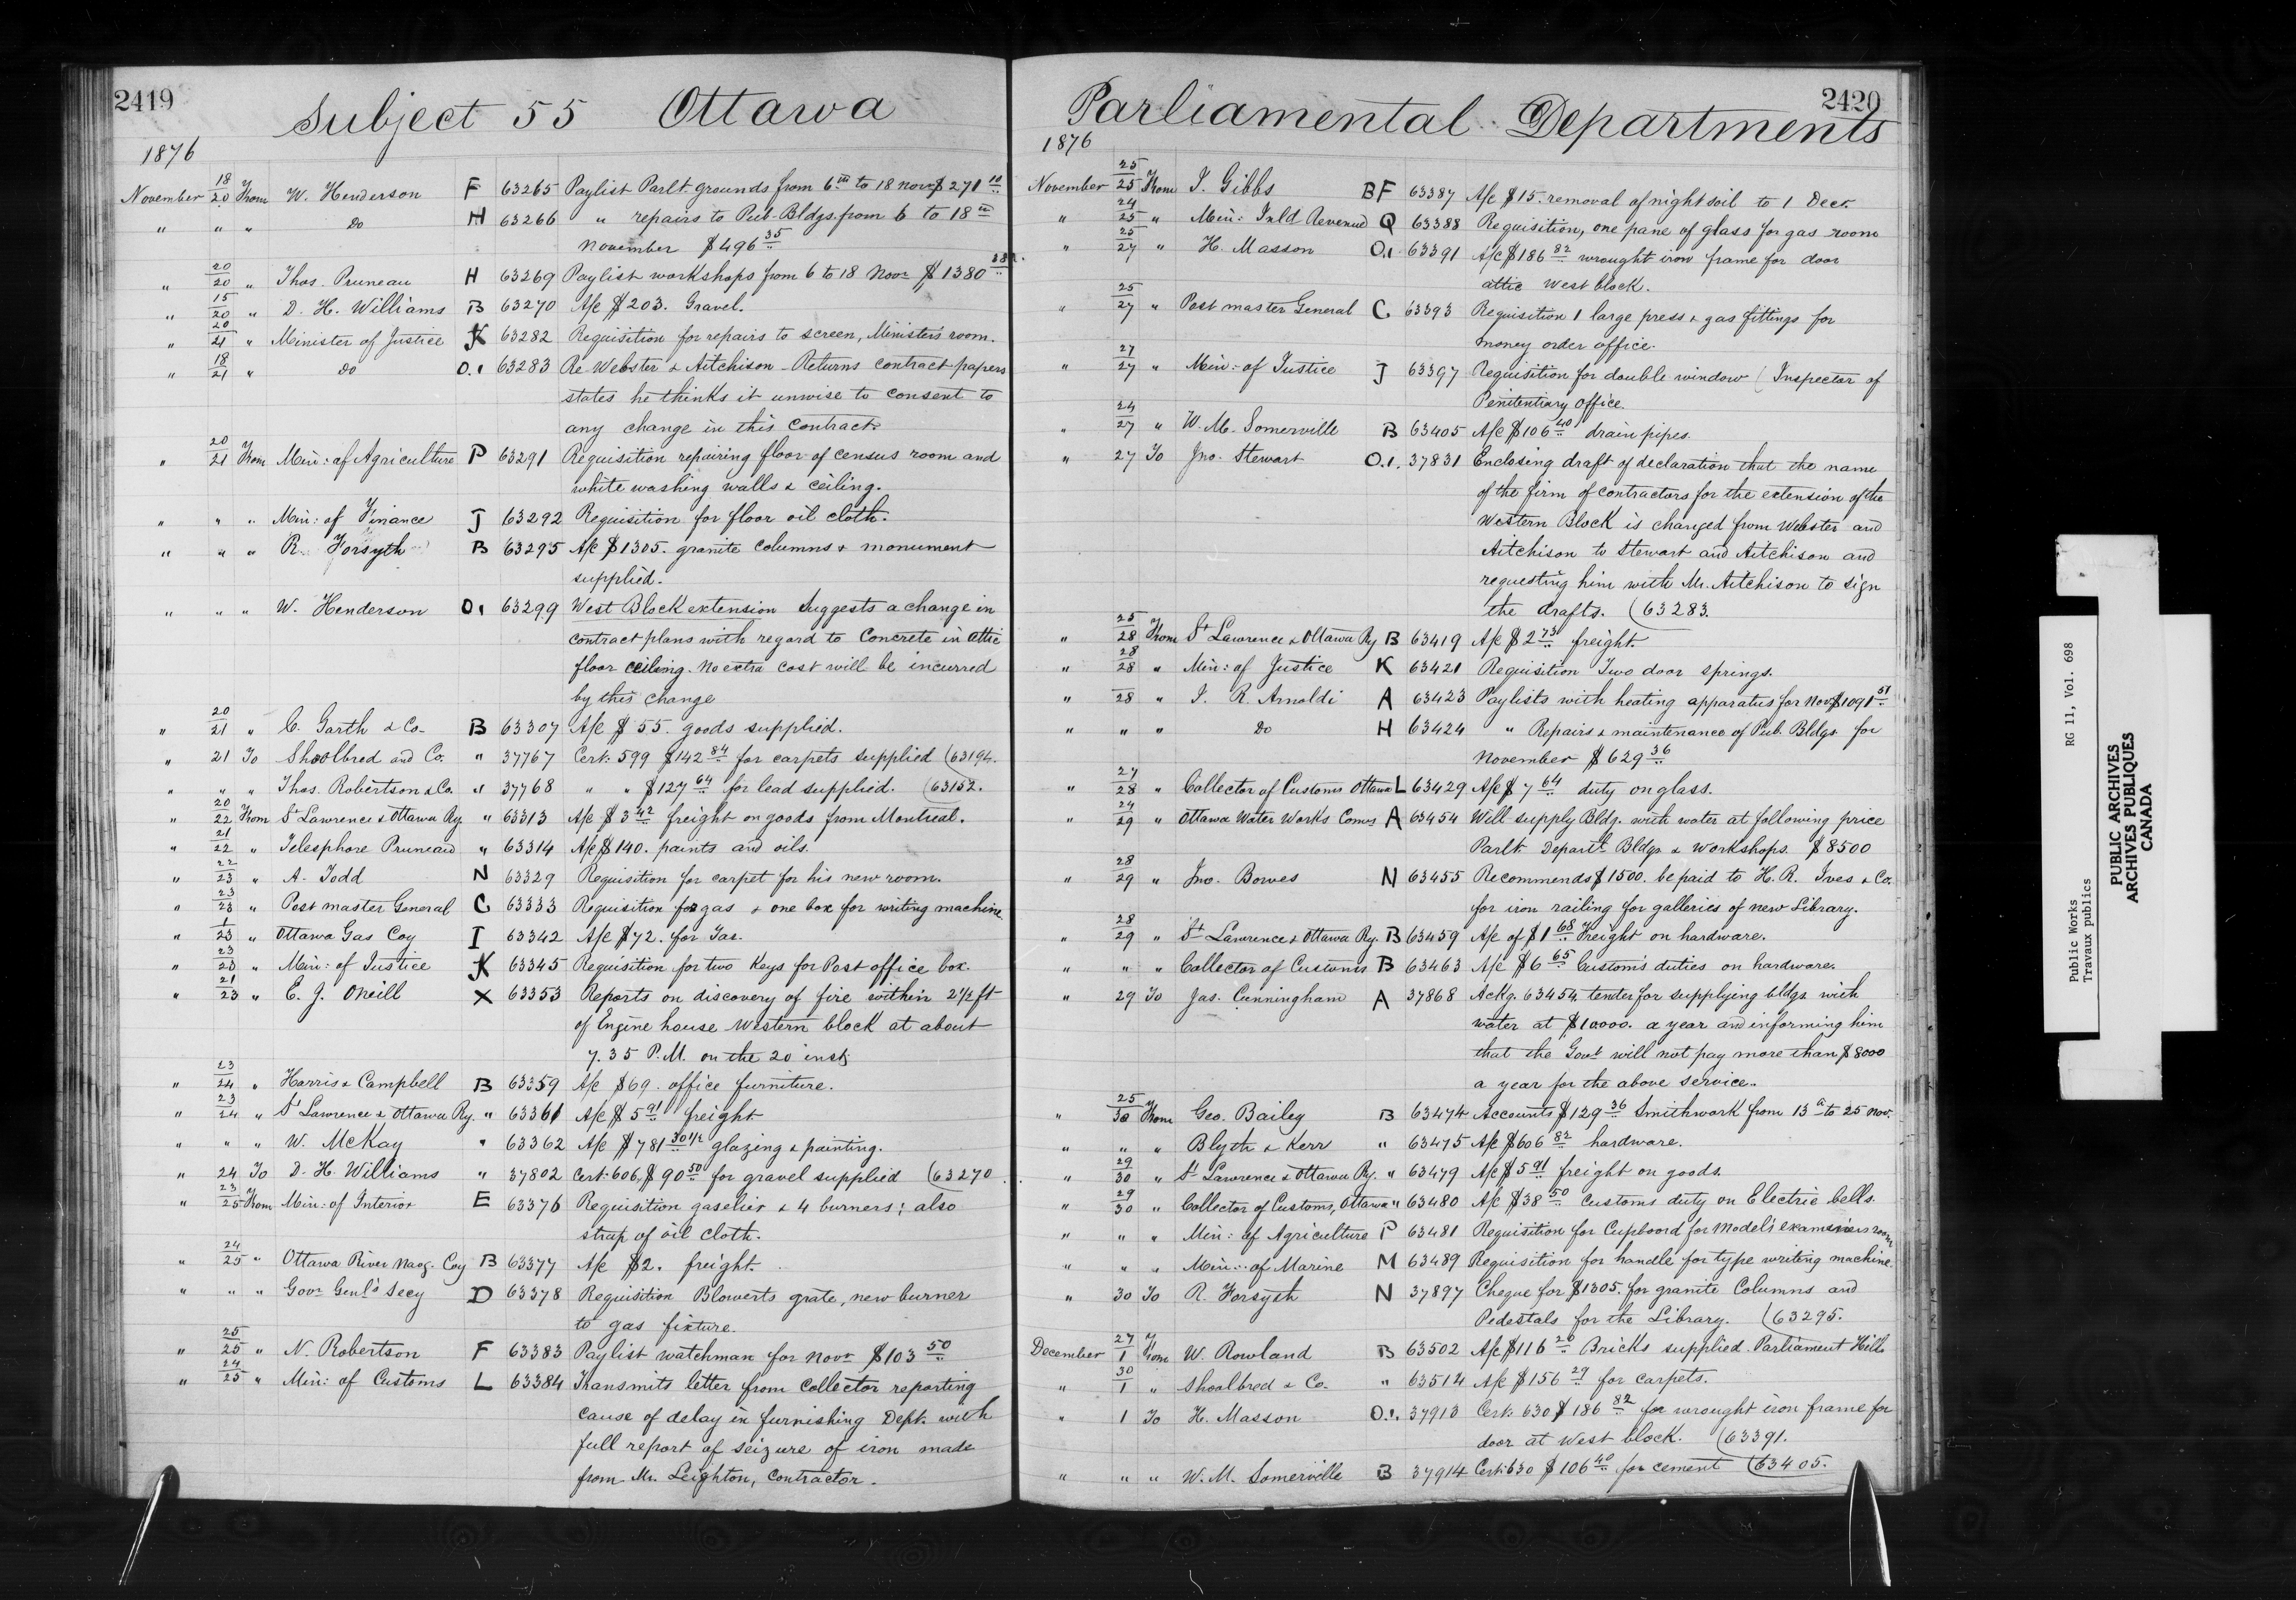 2419
Subject 55 Ottawa
1876
November 18/20 From W. Henderson F 63265 Paylist Parlt. grounds from 6th to 18 Novr $271.10
" " " Do H 63266 " repairs to Pub. Bldgs. from 6 to 18th
November $496.35
" 20/20 " Thos. Pruneau H 63269 Paylist workshops from 6 to 18 Novr $1380
" 15/20 " D. H. Williams B 63270 A/c $203. Gravel.
" 20/21 " Minister of Justice K 63282 Requisition for repairs to screen, Minister's room.
" 18/21 " Do O.1 63283 Re Webster & Aitchison - Returns contract papers
states he thinks it unwise to consent to
any change in this contract.
" 20/21 From Min: of Agriculture P 63291 Requisition repairing floor of census room and
white washing walls & ceiling.
" " " Min: of Finance J 63292 Requisition for floor oil cloth.
" " " R. Forsyth B 63295 A/c $1305. granite columns & monument
supplied.
" " " W. Henderson O1 63299 West Block extension Suggests a change in
contract plans with regard to Concrete in attic
floor ceiling. No extra cost will be incurred
by this change
" 20/21 " C. Garth & Co. B 63307 A/c $55. goods supplied.
" 21 To Shoolbred and Co. " 37767 Cert. 599 $142.84 for carpets supplied (63194.
" " " Thos. Robertson & Co. " 37768 " " $127.64 for lead supplied. (63152.
" 20/22 From St Lawrence & Ottawa Ry " 63313 A/c $3.42 freight on goods from Montreal.
" 21/22 " Telesphore Pruneau " 63314 A/c $140. paints and oils.
" 22/23 " A. Todd N 63329 Requisition for carpet for his new room.
" 23/23 " Post master General C 63333 Requisition for gas & one box for writing machine
" 1/23 " Ottawa Gas Coy I 63342 A/c $72. for Gas.
" 23/23 " Min: of Justice K 63345 Requisition for two Keys for Post office box.
" 21/23 " E. J. ONeill X 63353 Reports on discovery of fire within 2 1/2 ft
of Engine house Western block at about
7.35 P.M. on the 20 inst;
" 23/24 " Harris & Campbell B 63359 A/c $69. office furniture.
" 23/24 " St Lawrence & Ottawa Ry. " 63361 A/c $5.91 freight
" " " W. McKay " 63362 A/c $781.30 1/2 glazing & painting.
" 24 To D. H. Williams " 37802 Cert: 606, $90.50 for gravel supplied (63270
" 23/25 From Min: of Interior E 63376 Requisition gaselier & 4 burners; also
strap of oil cloth.
" 24/25 " Ottawa River Navg. Coy B 63377 A/c $2. freight.
" " " Govr Genl's Secy D 63378 Requisition Blowerts grate, new burner
to gas fixture.
" 25/25 " N. Robertson F 63383 Paylist watchman for Novr $103.50
" 24/25 " Min: of Customs L 63384 Transmits letter from Collector reporting
cause of delay in furnishing Dept. with
full report of seizure of iron made
from Mr. Leighton, Contractor.
2420
Parliamental Departments
1876
November 25/25 From J. Gibbs BF 63387 A/c $15. removal of night soil to 1 Decr.
" 24/25 " Min: Inld Revenue Q 63388 Requisition, one pane of glass for gas room
" 25/27 " H. Masson O.1 63391 A/c $186.82 wrought iron frame for door
attic West block.
" 25/27 " Post master General C 63393 Requisition 1 large press & gas fittings for
money order office.
" 27/27 " Min: of Justice J 63397 Requisition for double window (Inspector of
Penitentiary Office.
" 24/27 " W. M. Somerville B 63405 A/c $106.40 drain pipes.
" 27 To Jno. Stewart O.1. 37831 Enclosing draft of declaration that the name
of the firm of contractors for the extension of the
Western Block is changed from Webster and
Aitchison to Stewart and Aitchison and
requesting him with Mr. Aitchison to sign
the drafts. (63283.
" 25/28 From St Lawrence & Ottawa Ry B 63419 A/c $2.73 freight.
" 28/28 " Min: of Justice K 63421 Requisition Two door springs.
" 28 " J. R. Arnoldi A 63423 Paylists with heating apparatus for Nov. $1091.51
" " " Do H 63424 " Repairs & maintenance of Pub. Bldgs for
November $629.36
" 27/28 " Collector of Customs Ottawa L 63429 A/c $7.64 duty on glass.
" 24/29 " Ottawa Water Works Comrs A 63454 Will supply Bldg. with water at following price
Parlt. Departl. Bldgs & Workshops. $8500
" 28/29 " Jno. Bowes N 63455 Recommends $1500. be paid to H. R. Ives & Co.
for iron railing for galleries of new Library.
" 28/29 " St Lawrence & Ottawa Ry. B 63459 A/c of $1.68 Freight on hardware.
" " " Collector of Customs B 63463 A/c $6.65 Customs duties on hardware.
" 29 To Jas. Cunningham A 37868 Ackg. 63454, tender for supplying bldgs with
water at $10000. a year and informing him
that the Govt will not pay more than $8000
a year for the above service.
" 25/30 From Geo. Bailey B 63474 Accounts $129.36 Smithwork from 13th to 25 Nov.
" " " Blyth & Kerr " 63475 A/c $606.82 hardware.
" 29/30 " St Lawrence & Ottawa Ry. " 63479 A/c $5.91 freight on goods.
" 29/30 " Collector of Customs, Ottawa " 63480 A/c $38.50 Customs duty on Electric bells.
" " " Min: of Agriculture P 63481 Requisition for Cupboard for Model's room
" " " Min: of Marine M 63489 Requisition for handle for type writing machine.
" 30 To R. Forsyth N 37897 Cheque for $1305. for granite Columns and
Pedestals for the Library. (63295.
December 27/1 From W. Rowland B 63502 A/c $116.20 Bricks supplied Parliament Hill
" 30/1 " Shoolbred & Co. " 63514 A/c $156.29 for carpets.
" 1 To H. Masson O.1. 37913 Cert: 630 $186.82 for wrought iron frame for
door at West block. (63391.
" " " W. M. Somerville B 37914 Cert: 630 $106.40 for cement (63405.
Public Works RG 11, Vol. 698
Travaux publics
PUBLIC ARCHIVES
ARCHIVES PUBLIQUES
CANADA